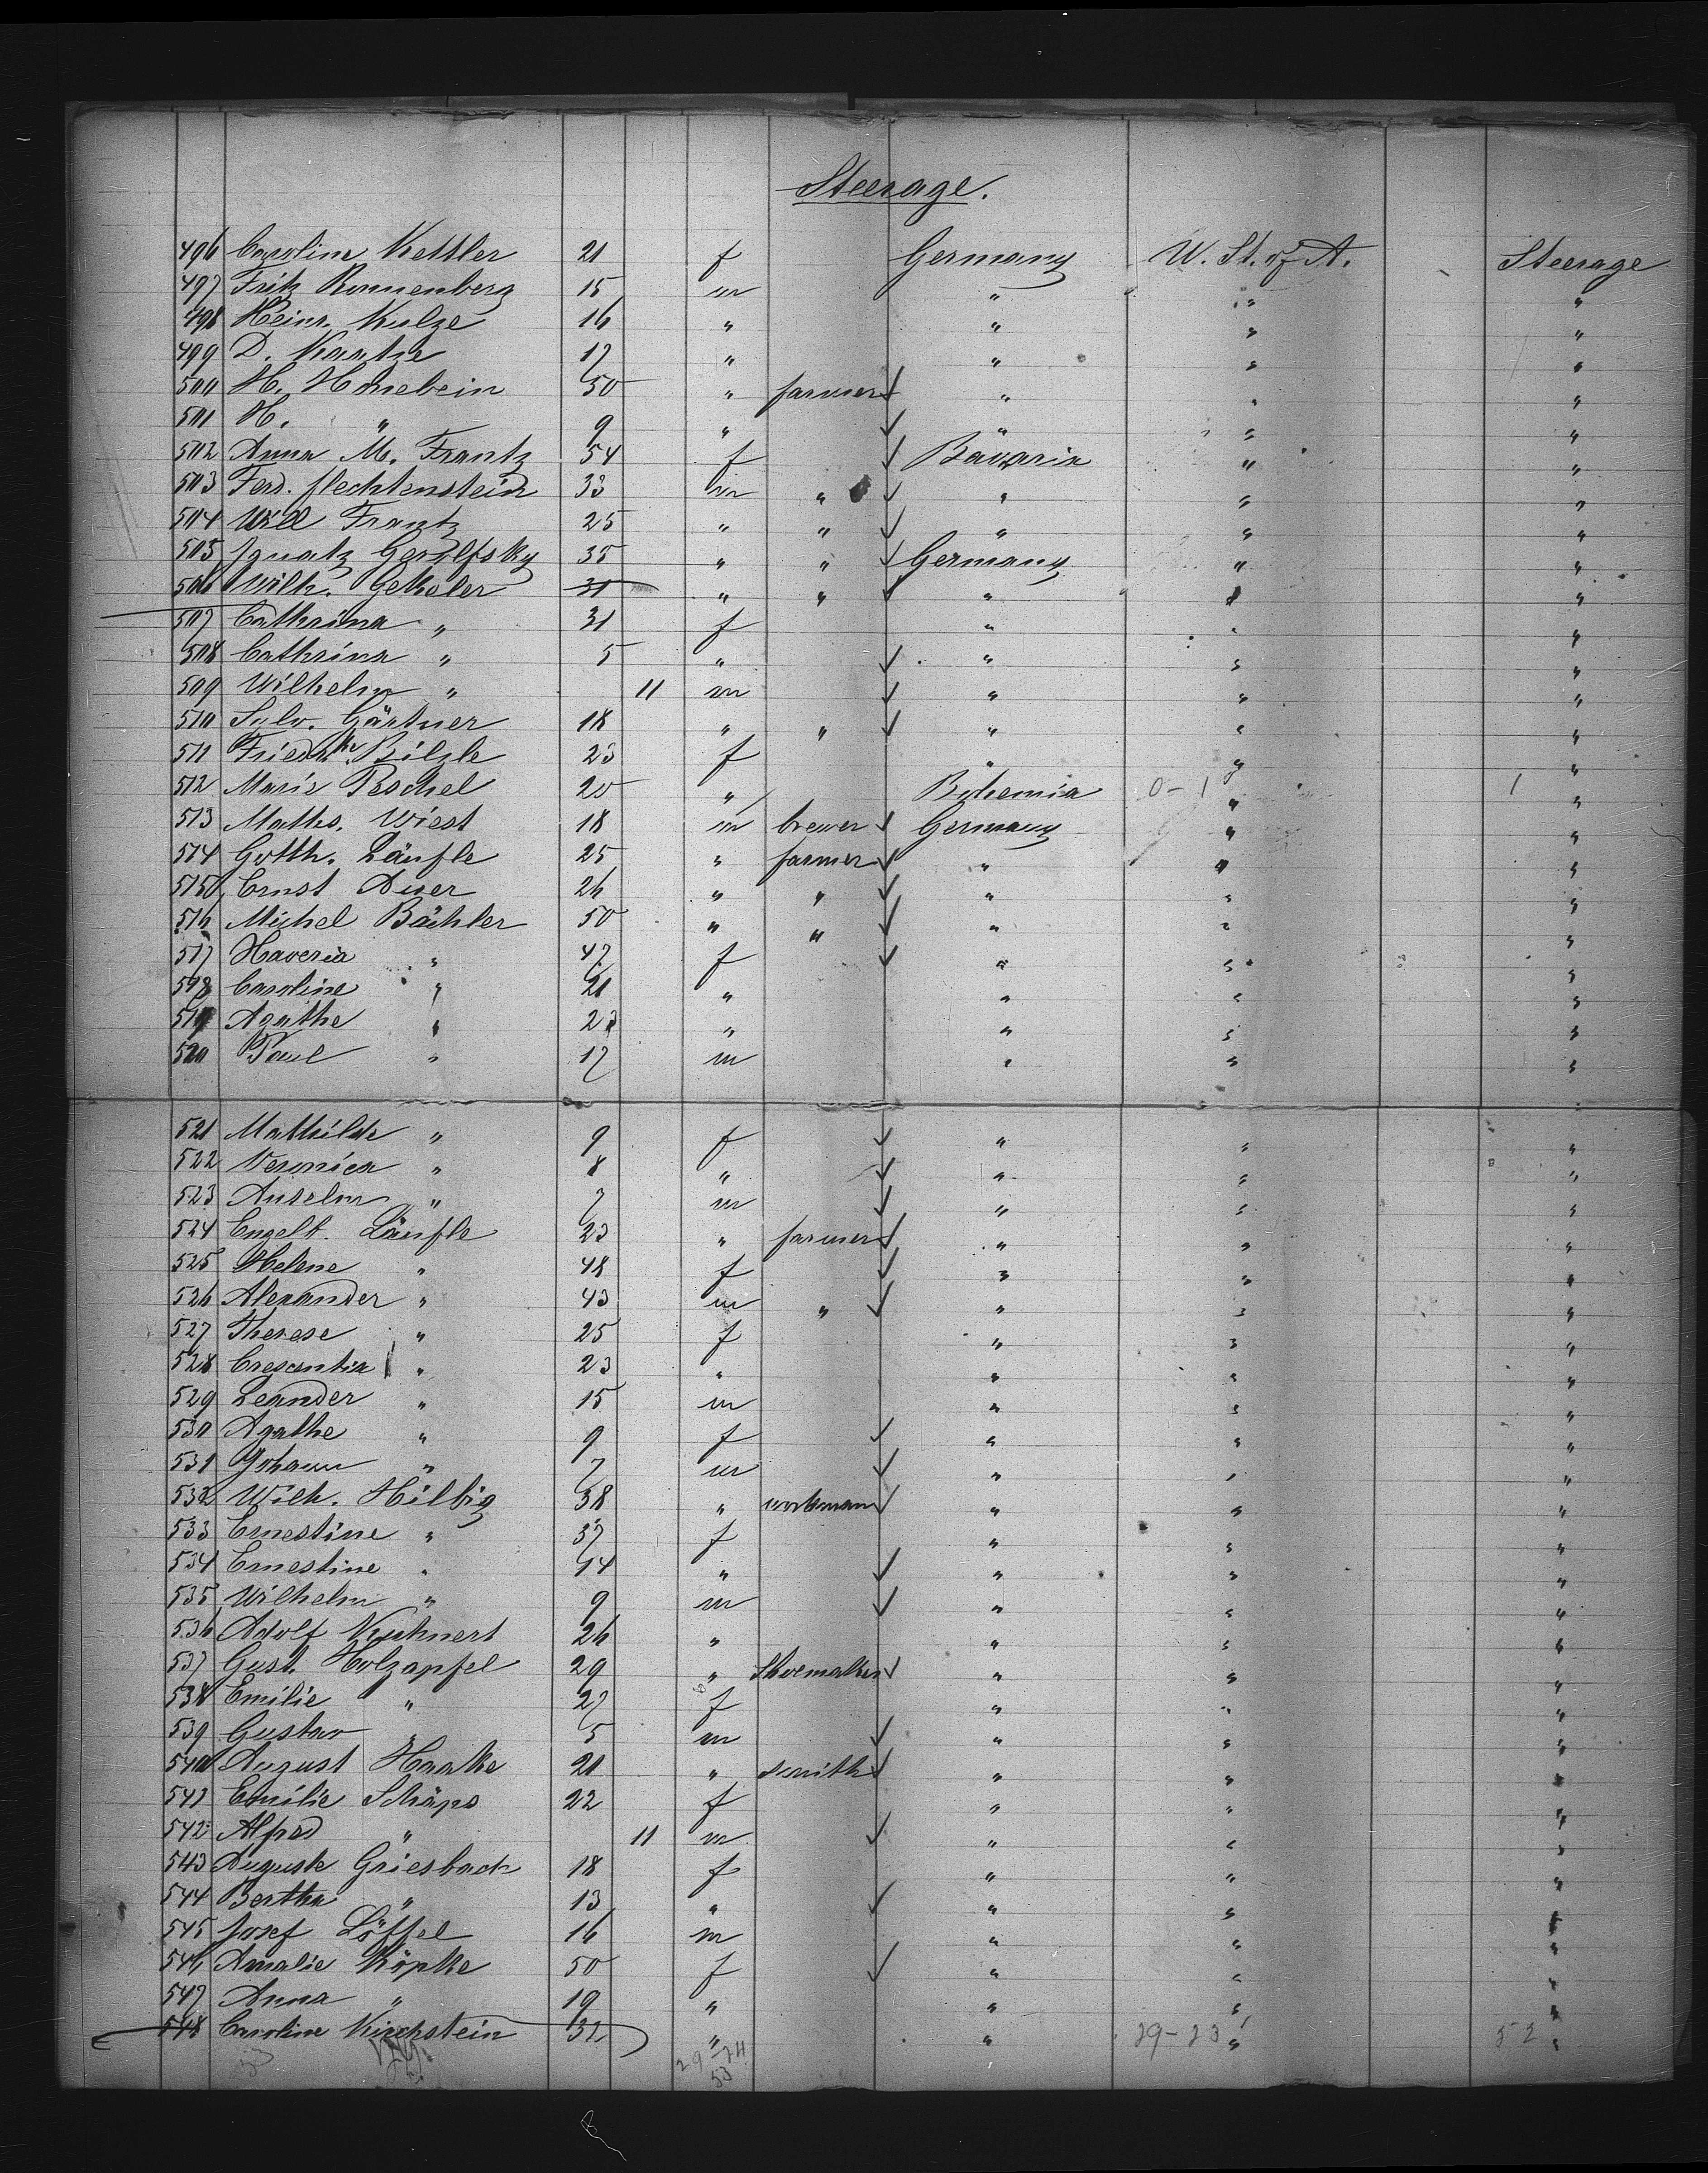 Steerage.
496 Caroline Kettler 21 f Germany U. St. of A. Steerage
497 Fritz Ronnenberg 15 m " " "
498 Heinr. Kulze 16 " " " "
499 D. Kaatze 17 " " " "
500 H. Honebein 50 " farmer " " "
501 H. " 9 " " " "
502 Anna M. Frantz 54 f Bavaria " "
503 Ferd. flechtenstein 33 m " " " "
504 Will Frantz 25 " " " " "
505 Ignatz Gerolfsky 35 " " Germany " "
506 Wilh. 31 " " " " "
507 Cathrina " 31 f " " "
508 Cathrina " 5 " " " "
509 Wilhelm " 11 m " " "
510 Sylv. Gärtner 18 " " " " "
511 Friedr.ke Bilzle 23 f " " "
512 Marie Peschel 20 " Bohemia 0-1 " 1 "
513 Maths. Wiest 18 m brewer Germany " "
514 Gotth. Läufle 25 " farmer " " "
515 Ernst Auer 26 " " " " "
516 Michel Bächler 50 " " " " "
517 Xaveria " 47 f " " "
518 Caroline " 21 " " " "
519 Agathe " 23 " " " "
520 Paul " 17 m " " "
521 Mathilde " 9 f " " "
522 Veronica " 8 " " " "
523 Anselm " 7 m " " "
524 Engelb. Läufle 23 " farmer " " "
525 Helene " 48 f " " "
526 Alexander " 43 m " " " "
527 Therese " 25 f " " "
528 Crescentia " 23 " " " "
529 Leander " 15 m " " "
530 Agathe " 9 f " " "
531 Johann " 7 m " " "
532 Wilh. Hilbig 38 " workman " " "
533 Ernestine " 37 f " " "
534 Ernestine " 14 " " " "
535 Wilhelm " 9 m " " "
536 Adolf Kuhnert 26 " " " "
537 Gust. Holzapfel 29 " Shoemaker " " "
538 Emilie " 27 f " " "
539 Gustav " 5 m " " "
540 August Haake 21 " smith " " "
541 Emilie Schäps 22 f " " "
542 Alfred " 11 m " " "
543 Auguste Griesbach 18 f " " "
544 Bertha " 13 " " " "
545 Josef Löffel 16 m " " "
546 Amalie Köpke 50 f " " "
547 Anna " 19 " " " "
548 Caroline Kirchstein 32 " " 29-23 " 52 "
29-24
53